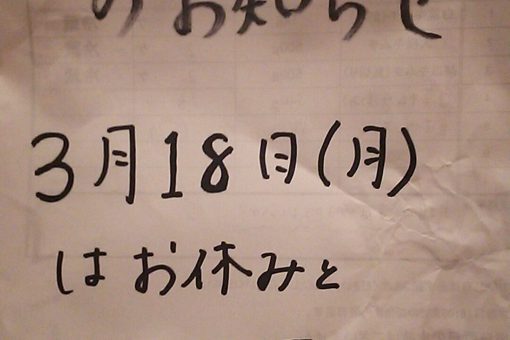 のお知らせ
3月18日(月)
はお休みと